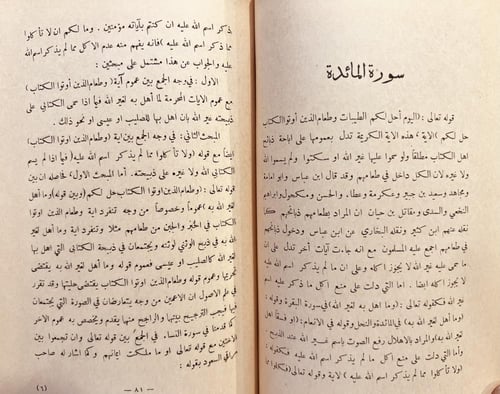 سورة المائدة
قوله تعالى : (اليوم أحل لكم الطيبات وطعام الذين أوتوا الكتاب
حل لكم ) الاية ، هذه الاية الكريمة تدل بعمومها على اباحة ذبائح
اهل الكتاب مطلقا ولو سموا عليها غير الله أو سكتوا ولم يسموا الله
ولا غيره لان الكل داخل في طعامهم وقد قال ابن عباس وابو امامة
ومجاهد وسعيد بن جبير وعكرمة وعطاء والحسن ومكحول وابراهيم
النخعي والسدى ومقاتل بن حيان ان المراد بطعامهم ذبائحهم كما
نقله عنهم ابن كثير ونقله البخاري عن ابن عباس ودخول ذبائحهم
في طعامهم اجمع عليه المسلمون مع انه جاءت آيات أخر تدل على ان
ما سمى عليه غير الله لا يجوز اكله وعلى ان ما لم يذكر اسم الله عليه
لا يجوز اكله ايضا . اما التي دلت على منع اكل ما ذكر عليه اسم
غير الله فكقوله تعالى : (وما اهل به لغير الله) في سورة البقرة وقوله :
(وما أهل لغير الله به) في المائدة والنحل وقوله في الانعام : (او فسقا اهل
لغير الله به) والمراد بالاهلال رفع الصوت باسم غير الله عند الذبح .
وأما التي دلت على منع اكل ما لم يذكر اسم الله عليه فكقوله :
(ولا تأكلوا مما لم يذكر اسم الله عليه ) لاية وقوله تعالى (فكلوا مما
ذكر اسم الله عليه ان كنتم بآياته مؤمنين . وما لكم ان لا تأكلوا
مما ذكر اسم الله عليه ) فانه يفهم منه عدم الاكل مما لم يذكر اسم الله
عليه والجواب عن هذا مشتمل على مبحثين :
الاول : في وجه الجمع بين عموم آية ( وطعام الذين أوتوا الكتاب )
مع عموم الايات المحرمة لما أهل به لغير الله فيما اذا سمى الكتابي على
ذبيحته غير الله بان اهل بها للصليب او عيسى او نحو ذلك .
المبحث الثاني : في وجه الجمع بين اية (وطعام الذين أوتوا الكتاب)
ايضا مع قوله (ولا تأكلوا مما لم يذكر اسم الله عليه) فيما اذا لم يسم
الكتابي الله ولا غيره على ذبيحته. أما المبحث الاول . فحاصله ان بين
قوله تعالى : (وطعام الذين اوتوا الكتاب حل لكم) وبين (وقوله) وما أهل
لغير الله به ) عموما وخصوصا من وجه تنفرد اية وطعام الذين اوتوا
الكتاب في الخبز والجبن من طعامهم مثلا وتنفرد اية وما أهل لغير
الله به في ذبيح الوثني لوثنه ويجتمعان في ذبيحة الكتابي التي أهل بها
لغير الله كالصليب او عيسى فعموم قوله وما أهل لغير الله به يقتضى
تحريمها وعموم وطعام الذين اوتوا الكتاب يقتضى حليتها وقد تقرر
في علم الاصول ان الاعمين من وجه يتعارضان في الصورة التي يجتمعان
فيها فيجب الترجيح بينها والراجح منها يقدم ويخصص به عموم الاخر
كما قدمنا في سورة النساء . في الجمع بين قوله تعالى وان تجمعوا بين
الاختين مع قوله تعالى أو ما ملكت ايمانهم وكما اشار له صاحب
مراقي السعود بقوله :
— ٨١ —
(٦)